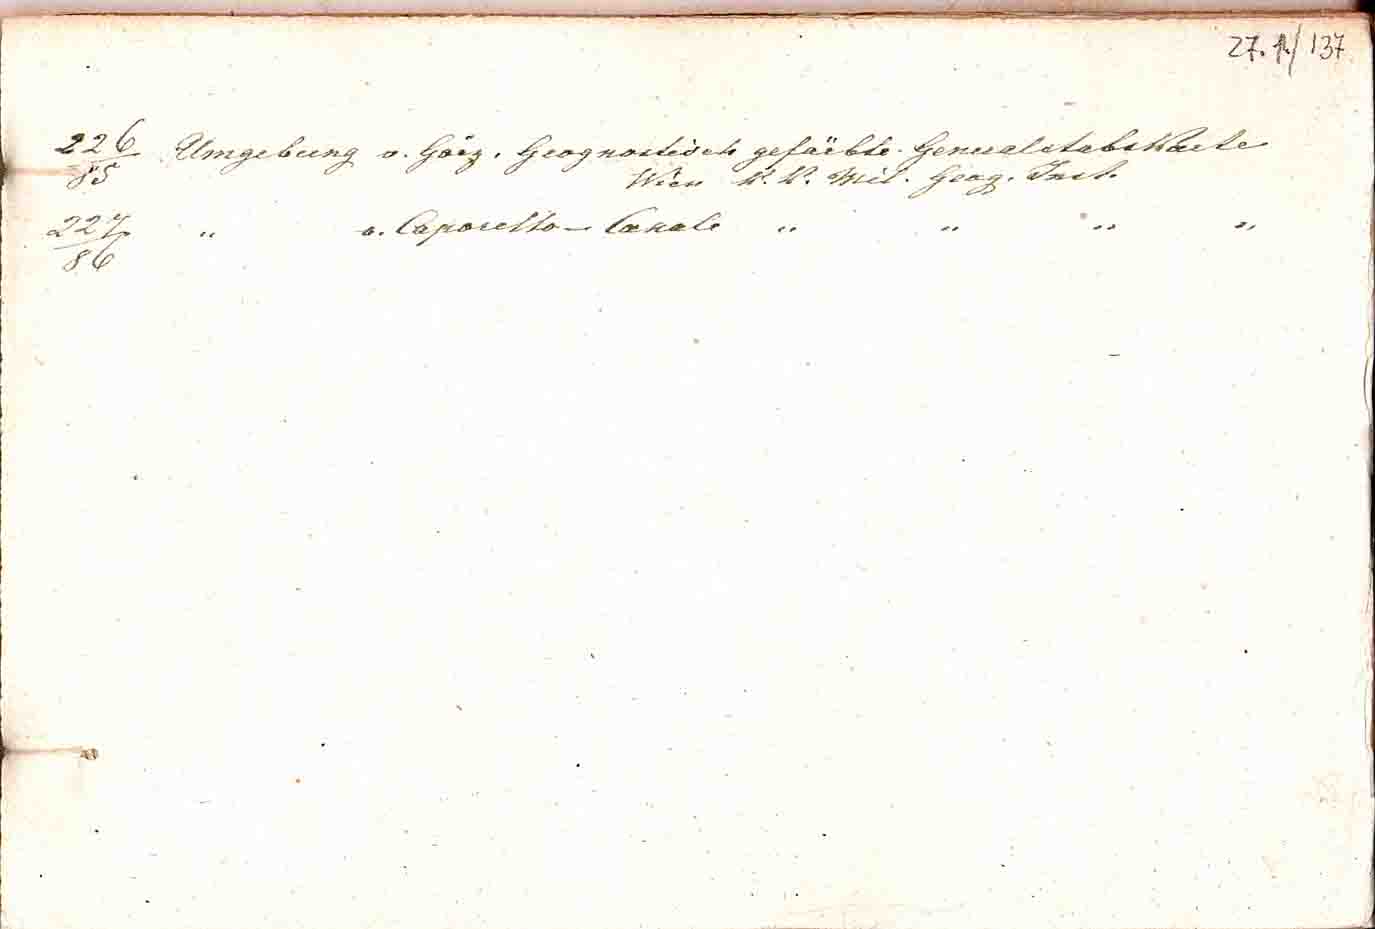 27.1/137
226 Umgebung v. Görz. Geognostisch gefärbte. Generalstabskarte
85 Wien K. K. Mil. Geog. Inst.
227 " v. Caporetto – Canale " " " "
86